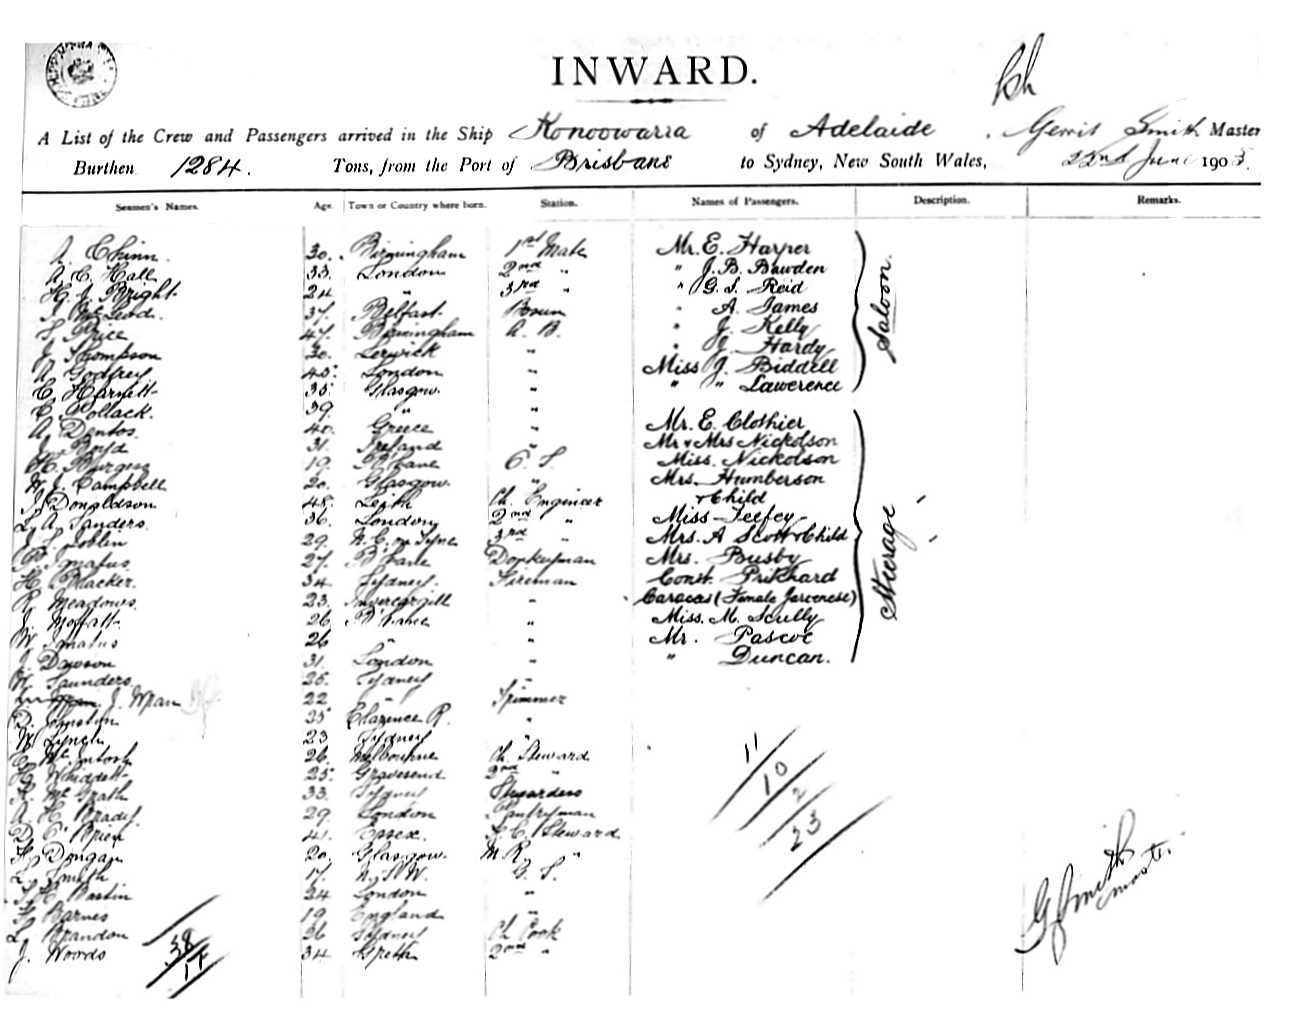 INWARD.
A List of the Crew and Passengers arrived in the Ship Konoowarra of Adelaide, Gerrit Smith Master
Burthen 1284. Tons, from the Port of Brisbane to Sydney, New South Wales, 22nd June 1903.
Seamen's Names. Age. Town or Country where born. Station. Names of Passengers. Description. Remarks.
A. Chinn. 30. Birmingham 1st Mate Mr. E. Harper
A. C. Hall 33. London 2nd " " J. B. Bawden
H. J. Bright 24 " 3rd " " G. S. Reid
J. McLeod. 37. Belfast. Bosun " A. James
S. Price 47. Birmingham A. B. " J. Kelly
J. Thompson 30. Lerwick " " J. Hardy
A. Godfrey 45. London " Miss J. Biddell
C. Harnett 35. Glasgow. " " " Lawerence
Saloon.
C. Pollack. 39. " "
A. Dentos. 40. Greece " Mr. E. Clothier
J. Boyd 31. Ireland " Mr & Mrs Nickolson
H. Burgess 19. B'bane O. S. Miss. Nickolson
W. J. Campbell 20. Glasgow. " Mrs. Humberson
J. Donaldson 48. Leith Ch. Engineer & Child
L. A. Sanders. 36. London 2nd " Miss Feefey
J. S. Joblin 29. N. C. on Tyne 3rd " Mrs. A Scott & Child
27. B'bane Donkeyman Mrs. Busby
H. Blacker. 34. Sydney. Fireman Const. Prikhard
R. Meadows. 23. Invercargill " Caracas (Female Javenese)
J. Moffatt 26 B'bane " Miss. M. Scully
W. 26 " " Mr. Pascoe
J. Dawson 31. London " " Duncan.
Sturage
W. Saunders 25. Sydney "
J. Wran 22. " Trimmer
D. Johnston 35 Clarence R. "
W. Lynch 23 Sydney "
C. McIntosh 26. Melbourne Ch. Steward
H. Whiddett 25. Gravesend 2nd "
A. McGrath 33. Sydney Stewardess
A. H. Brady. 29. London Pantryman
D. O'Brien 41. Essex. F. C. Steward
H. Dongan 20. Glasgow. M. R. "
L. Smith 17. N. S. W. G. S.
T. H. Bastin 24 London "
H. Barnes 19 England "
L. Brandon 26 Sydney Ch Cook
J. Woods 34 2nd "
11
10
2
23
38
17
G Smith
master.